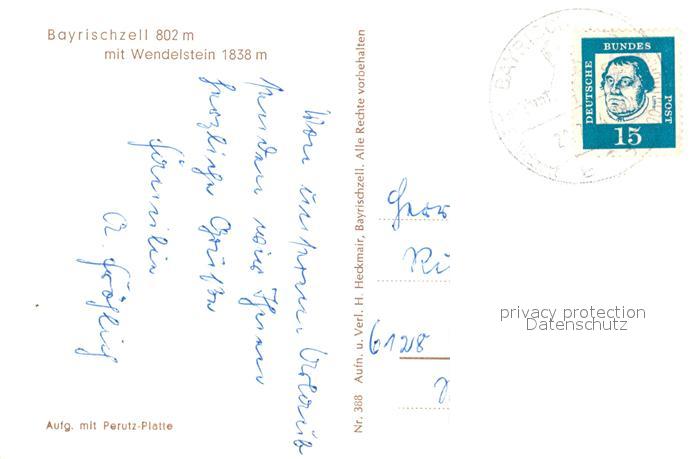 Bayrischzell 802 m
mit Wendelstein 1838 m
Von unserem Urlaub
senden wir Ihnen
herzliche Grüße
Familie
Aufg. mit Perutz-Platte
Nr. 388 Aufn. u. Verl. H. Heckmair, Bayrischzell. Alle Rechte vorbehalten
DEUTSCHE BUNDES POST
15
BAYRISCH
Herr
6128
privacy protection
Datenschutz